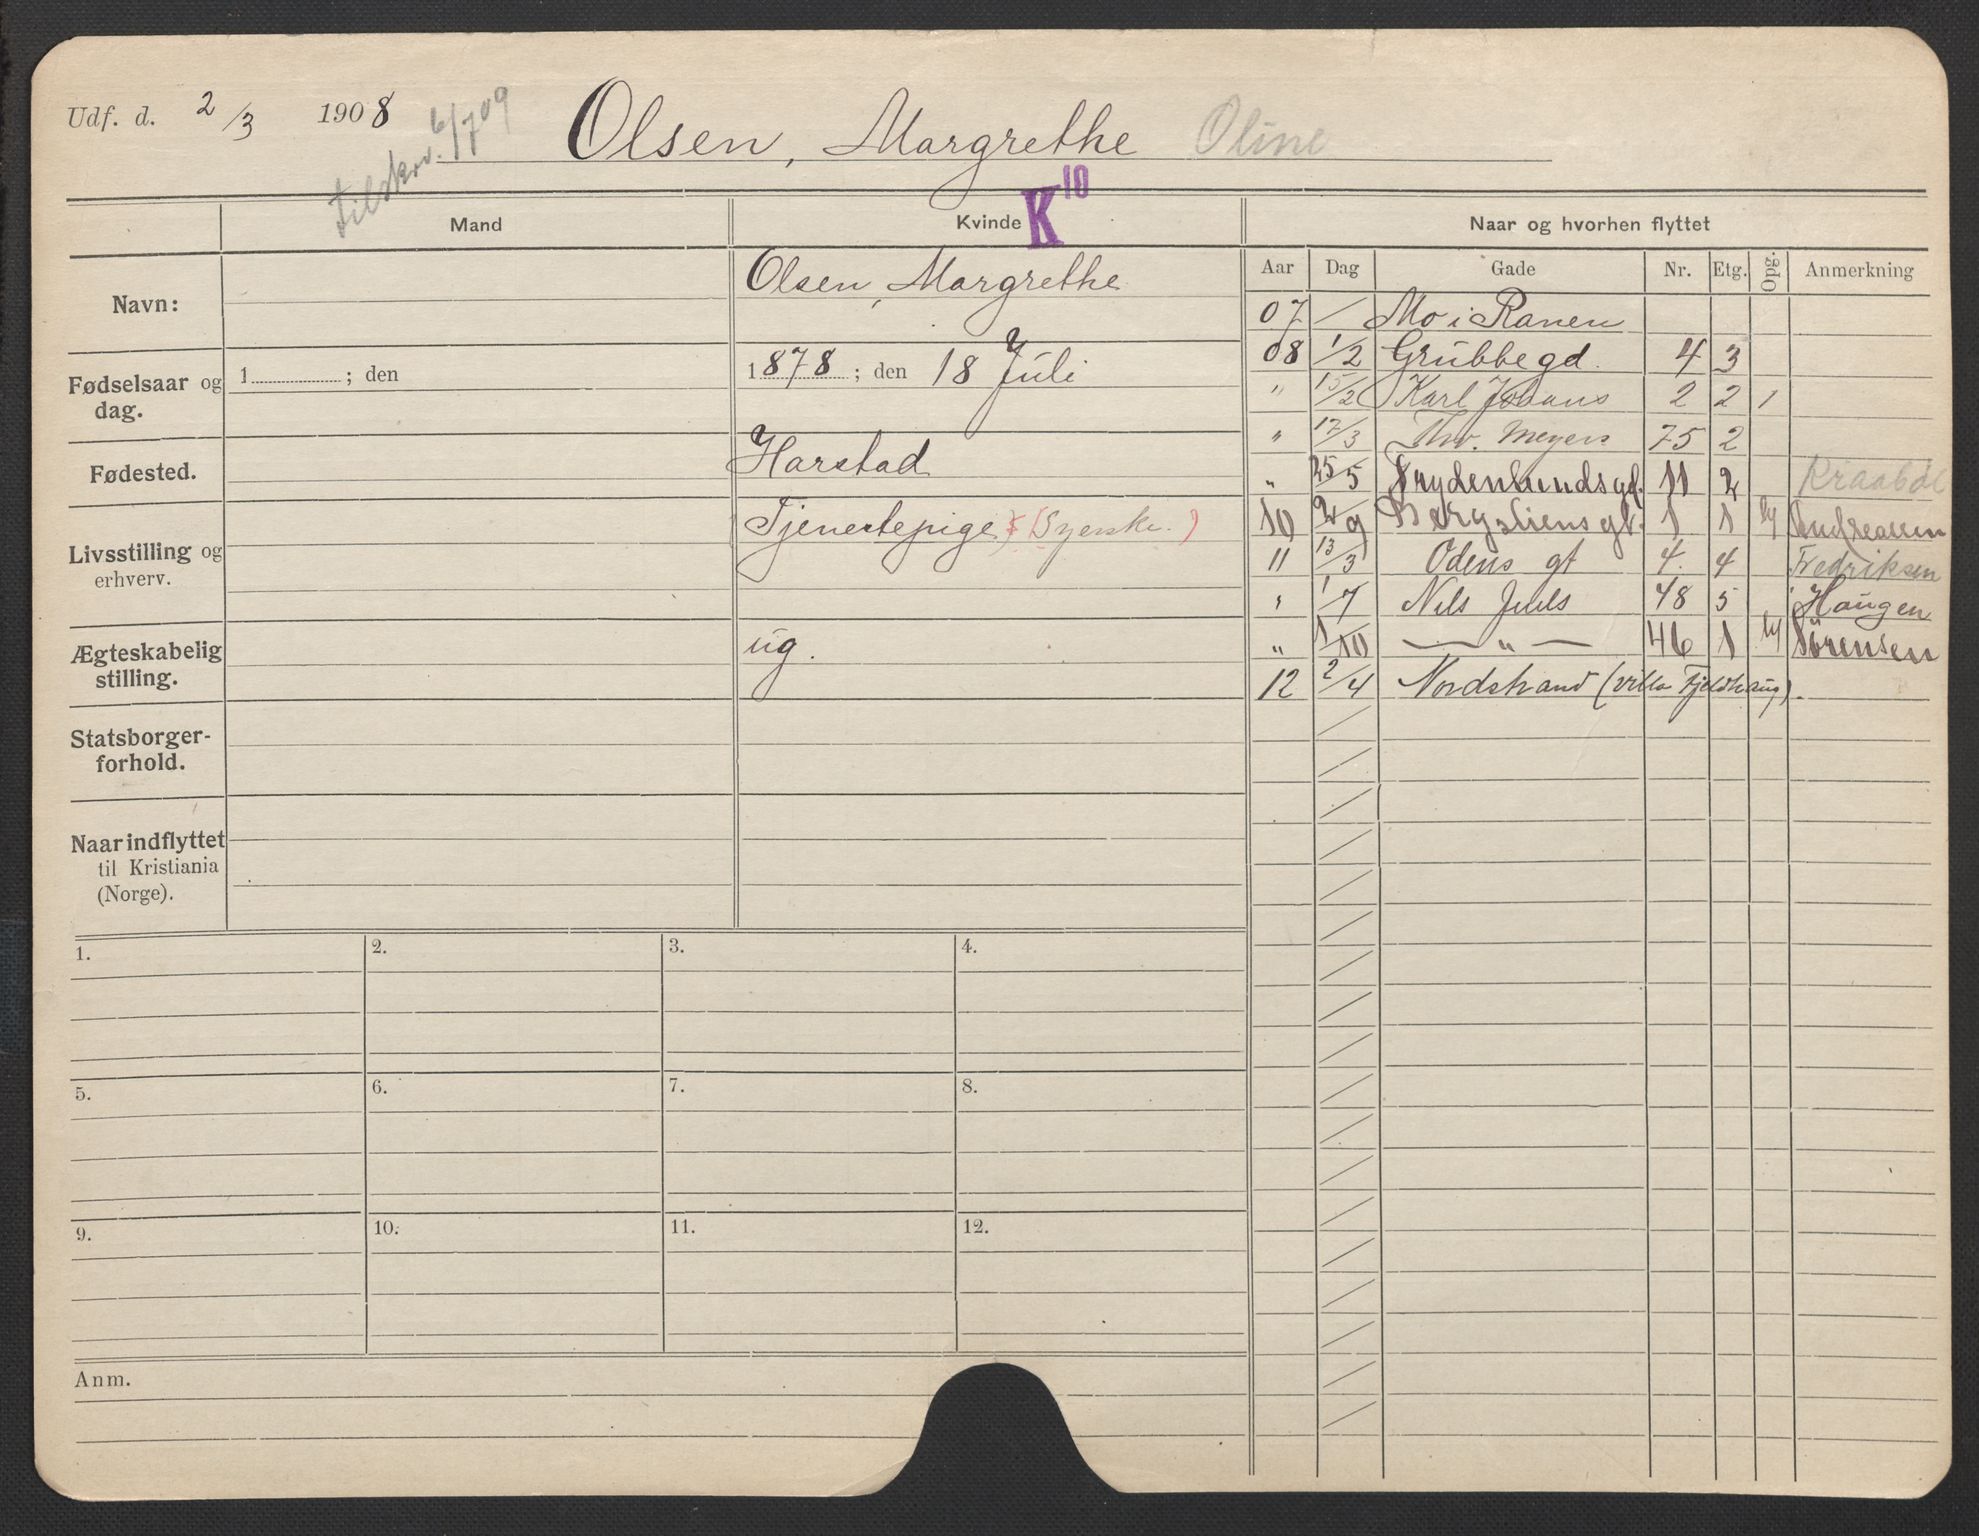 Udf. d. 2/3 1908
Tilskrv. 6/7 09
Olsen, Margrethe Oline
K 10
Mand
Kvinde
Naar og hvorhen flyttet
Navn:
Olsen, Margrethe
Fødselsaar og dag.
1 ; den
1878 ; den 18 Juli
Fødested.
Harstad
Livsstilling og erhverv.
Tjenestepige (Syerske.)
Ægteskabelig stilling.
ug.
Statsborger-
forhold.
Naar indflyttet
til Kristiania
(Norge).
Aar Dag Gade Nr. Etg. Opg. Anmerkning
07 / Mo i Ranen
08 1/2 Grubbegd. 4 3
" 15/2 Karl Johans 2 2 1
" 17/3 Thv. Meyers 75 2
" 25/5 Frydenlundsgd. 11 2 Kraabøl
10 2/9 Bergsliensgt. 1 1 Andreasen
11 13/3 Odens gt 4. 4 Fredriksen
" 1/7 Nils Juels 48 5 Haugen
" 1/10 — " — 46 1 Sørensen
12 2/4 Nordstrand (villa Fjeldhaug).
1.
2.
3.
4.
5.
6.
7.
8.
9.
10.
11.
12.
Anm.